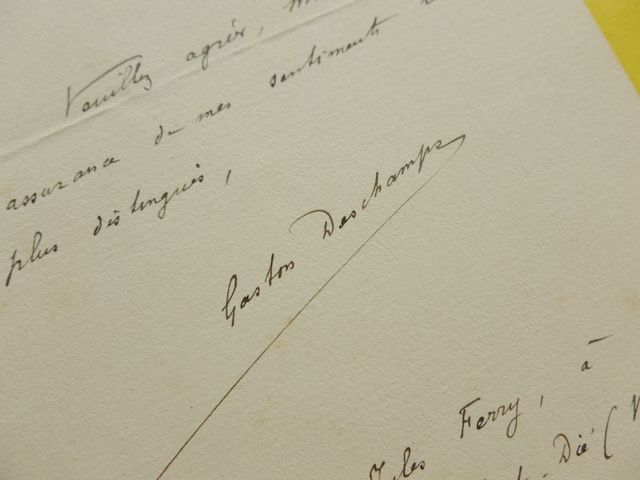 Veuillez agréer,
assurance de mes sentiments
plus distingués,
Gaston Deschamps
Jules Ferry, à
Dié (